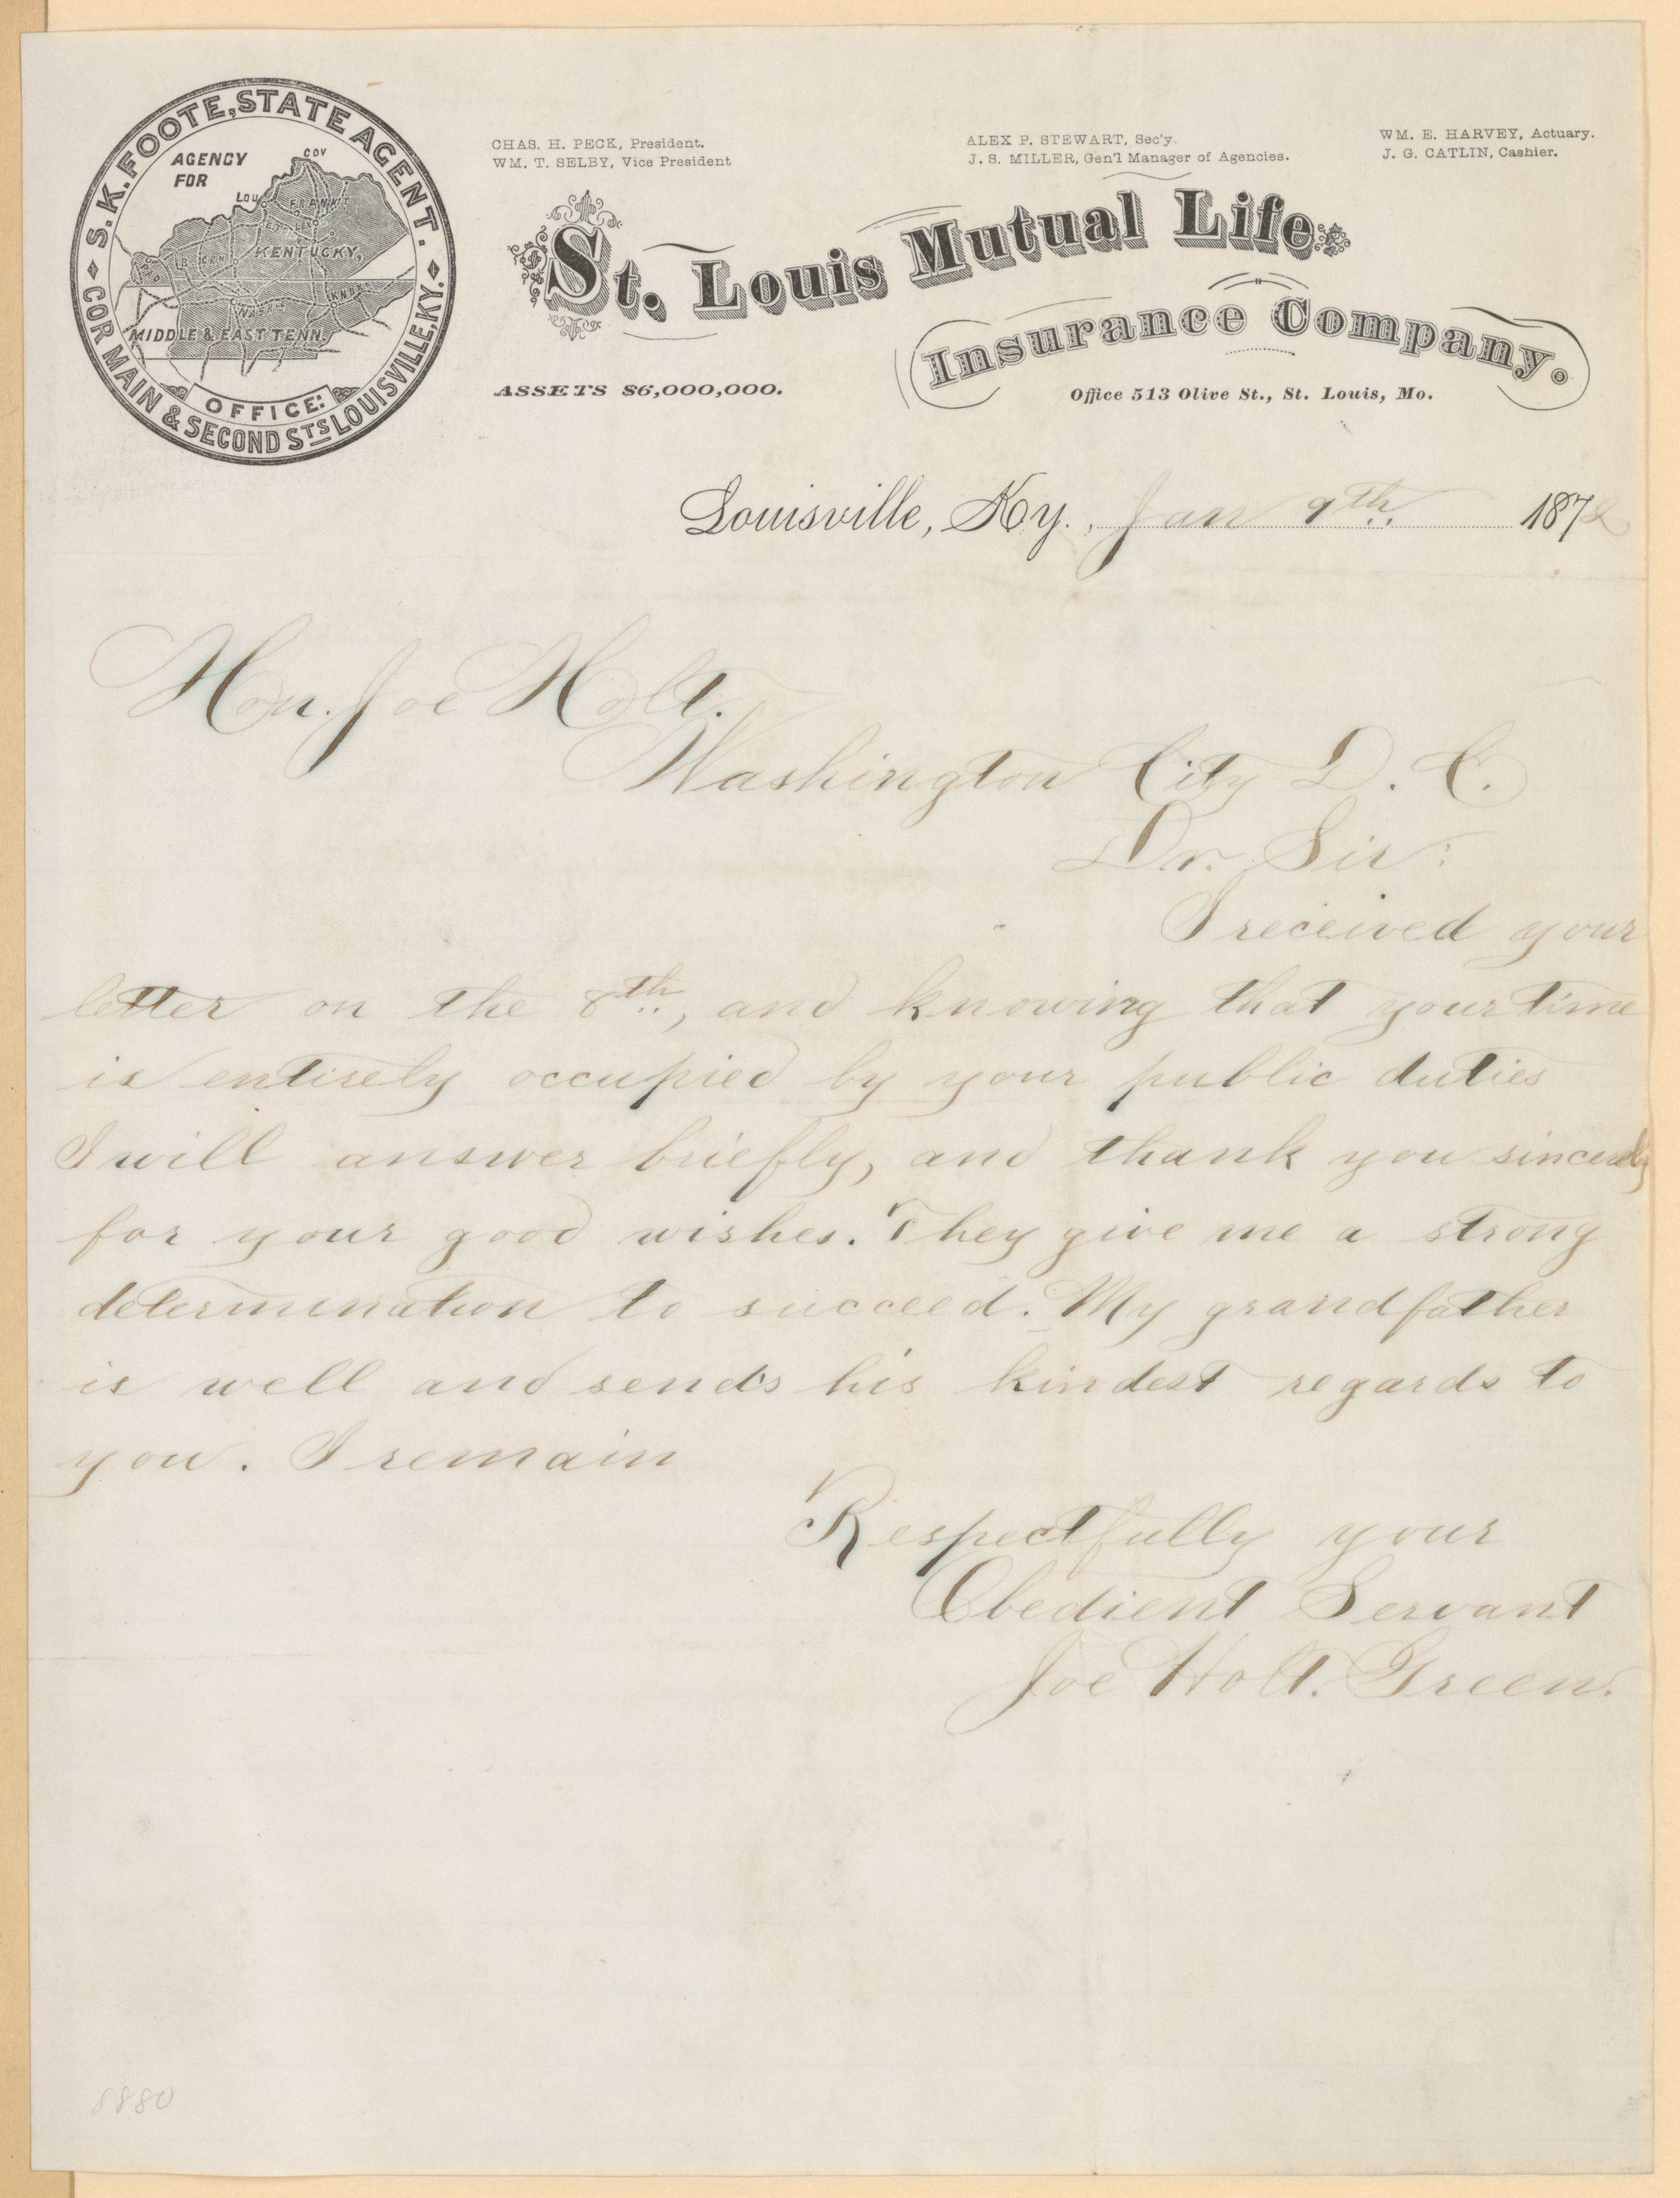 S. K. FOOTE, STATE AGENT.
COR MAIN & SECOND STS LOUISVILLE, KY.
AGENCY
FOR
COV
LOU
FRANKT
KENTUCKY,
KNOX
NASH
MIDDLE & EAST TENN.
OFFICE:
CHAS. H. PECK, President.
WM. T. SELBY, Vice President
ALEX P. STEWART, Sec'y.
J. S. MILLER, Gen'l Manager of Agencies.
WM. E. HARVEY, Actuary.
J. G. CATLIN, Cashier.
St. Louis Mutual Life
Insurance Company.
ASSETS $6,000,000.
Office 513 Olive St., St. Louis, Mo.
Louisville, Ky., Jan 9th 1872
Hon. Joe Holt.
Washington City D. C.
Dr. Sir:
I received your
letter on the 8th, and knowing that your time
is entirely occupied by your public duties
I will answer briefly, and thank you sincerely
for your good wishes. They give me a strong
determination to succeed. My grandfather
is well and sends his kindest regards to
you. I remain
Respectfully your
Obedient Servant
Joe Holt. Green.
8880